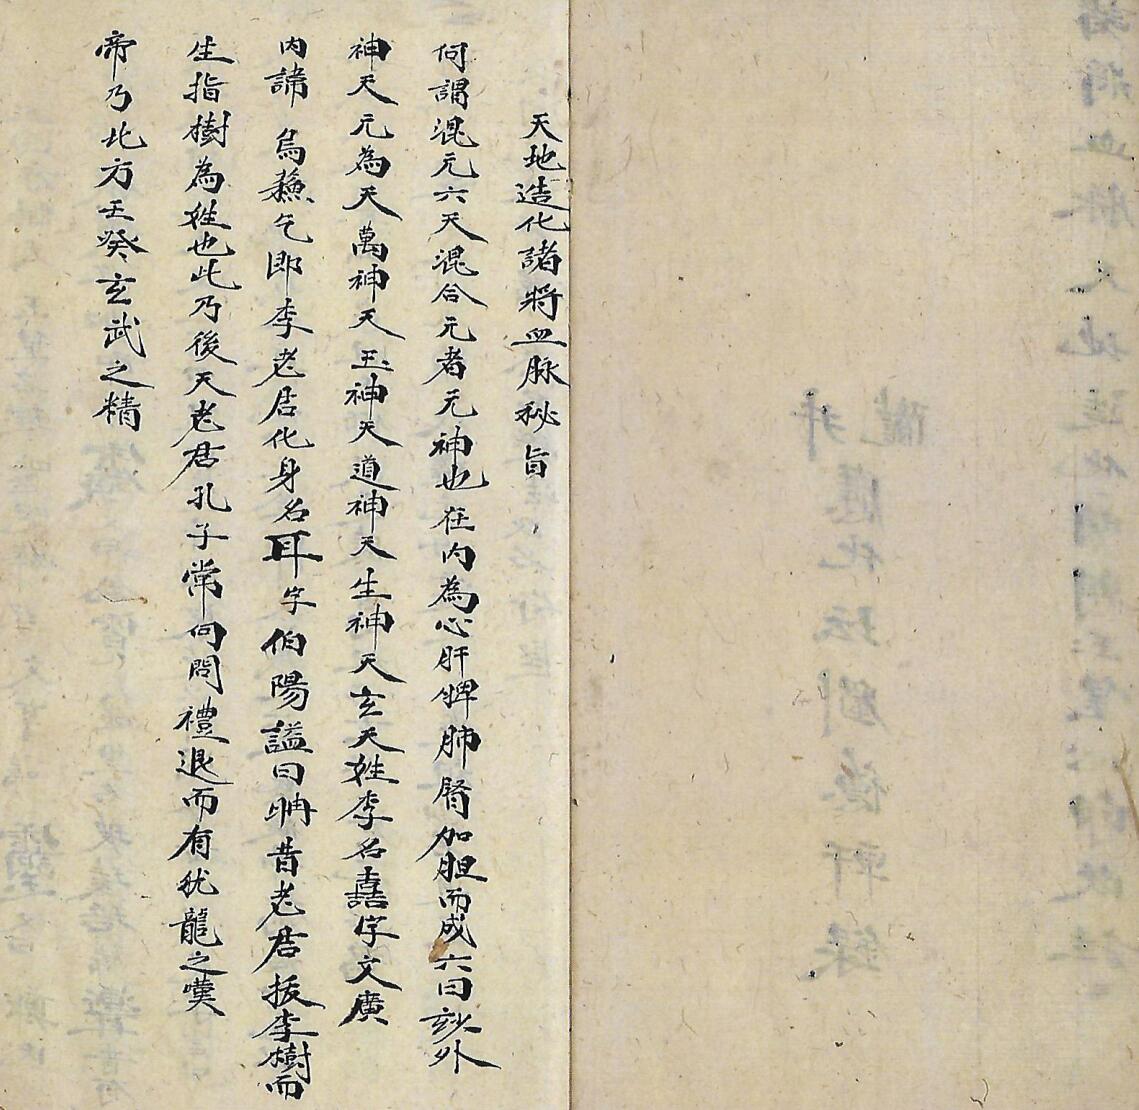 天地造化諸將血脉秘旨
何謂混元六天混合元者元神也在内為心肝脾肺腎加胆而成六曰玅外
神天元為天萬神天玉神天道神天生神天玄天姓李名囍字文廣
内諱烏䲆炁即李老君化身名耳字伯陽謚曰聃昔老君扳李樹而
生指樹為姓也此乃後天老君孔子常问問禮退而有犹龍之嘆
帝乃北方壬癸玄武之精